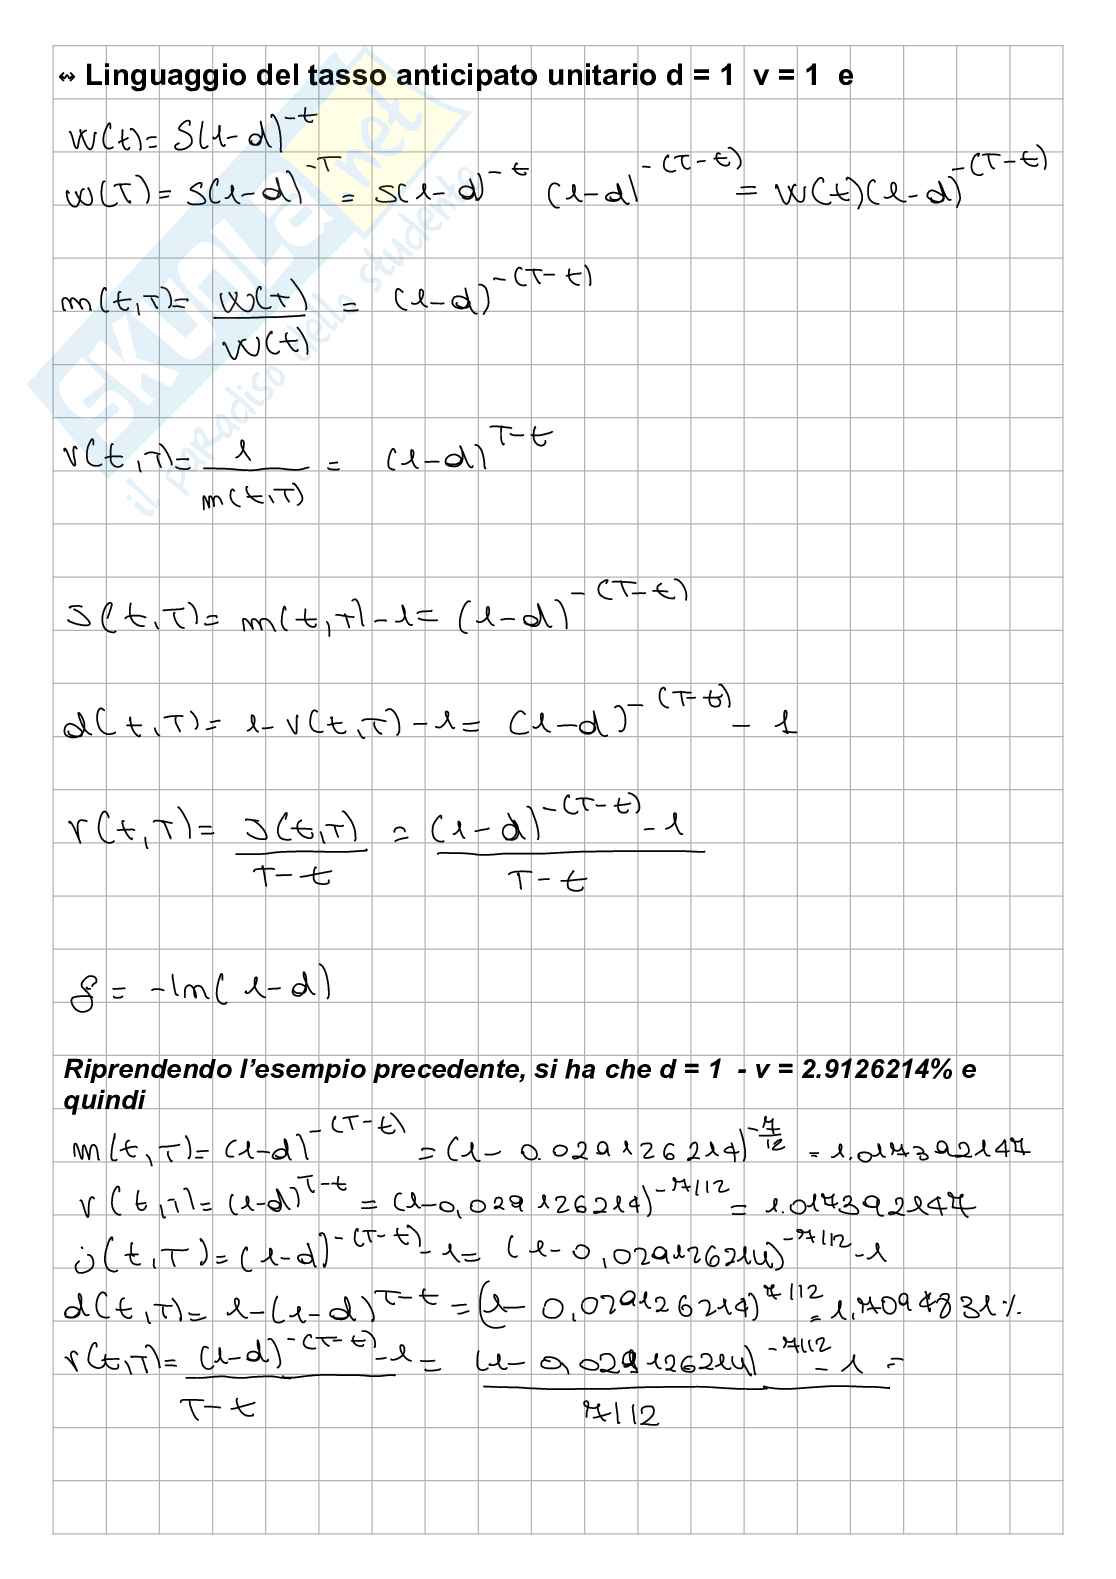 ↔ Linguaggio del tasso anticipato unitario d = 1 v = 1 e
W(t) = S(1-d)^-t
W(T) = S(1-d)^-T = S(1-d)^-t (1-d)^-(T-t) = W(t)(1-d)^-(T-t)
m(t,T) = W(T)/W(t) = (1-d)^-(T-t)
v(t,T) = 1/m(t,T) = (1-d)^T-t
J(t,T) = m(t,T) - 1 = (1-d)^-(T-t)
d(t,T) = 1 - v(t,T) - 1 = (1-d)^-(T-t) - 1
r(t,T) = J(t,T)/T-t = (1-d)^-(T-t) - 1/T-t
δ = -ln(1-d)
Riprendendo l'esempio precedente, si ha che d = 1 - v = 2.9126214% e
quindi
m(t,T) = (1-d)^-(T-t) = (1 - 0.029126214)^-7/12 = 1.017392147
v(t,T) = (1-d)^T-t = (1-0,029126214)^-7/12 = 1.017392147
j(t,T) = (1-d)^-(T-t) - 1 = (1-0,029126214)^-7/12 - 1
d(t,T) = 1-(1-d)^T-t = (1- 0,029126214)^7/12 = 1,7094831%
r(t,T) = (1-d)^-(T-t) - 1/T-t = (1-0,029126214)^-7/12 - 1/7/12 =
SKUOLA.net
il paradiso dello studente